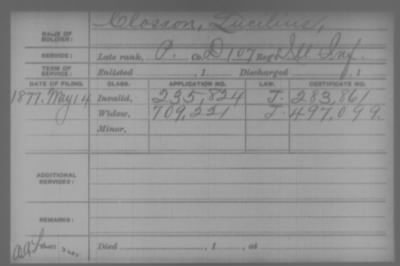 Closson, Lucilius,
NAME OF SOLDIER:
SERVICE: Late rank, P. Co. D 107 Reg't Ill Inf.
TERM OF SERVICE: Enlisted , 1 Discharged , 1
DATE OF FILING. CLASS. APPLICATION NO. LAW. CERTIFICATE NO.
1877. May 14 Invalid, 235,824 J. 283,861
Widow, 709,221 J. 497,099
Minor,
ADDITIONAL SERVICES:
REMARKS:
Died , 1 , at